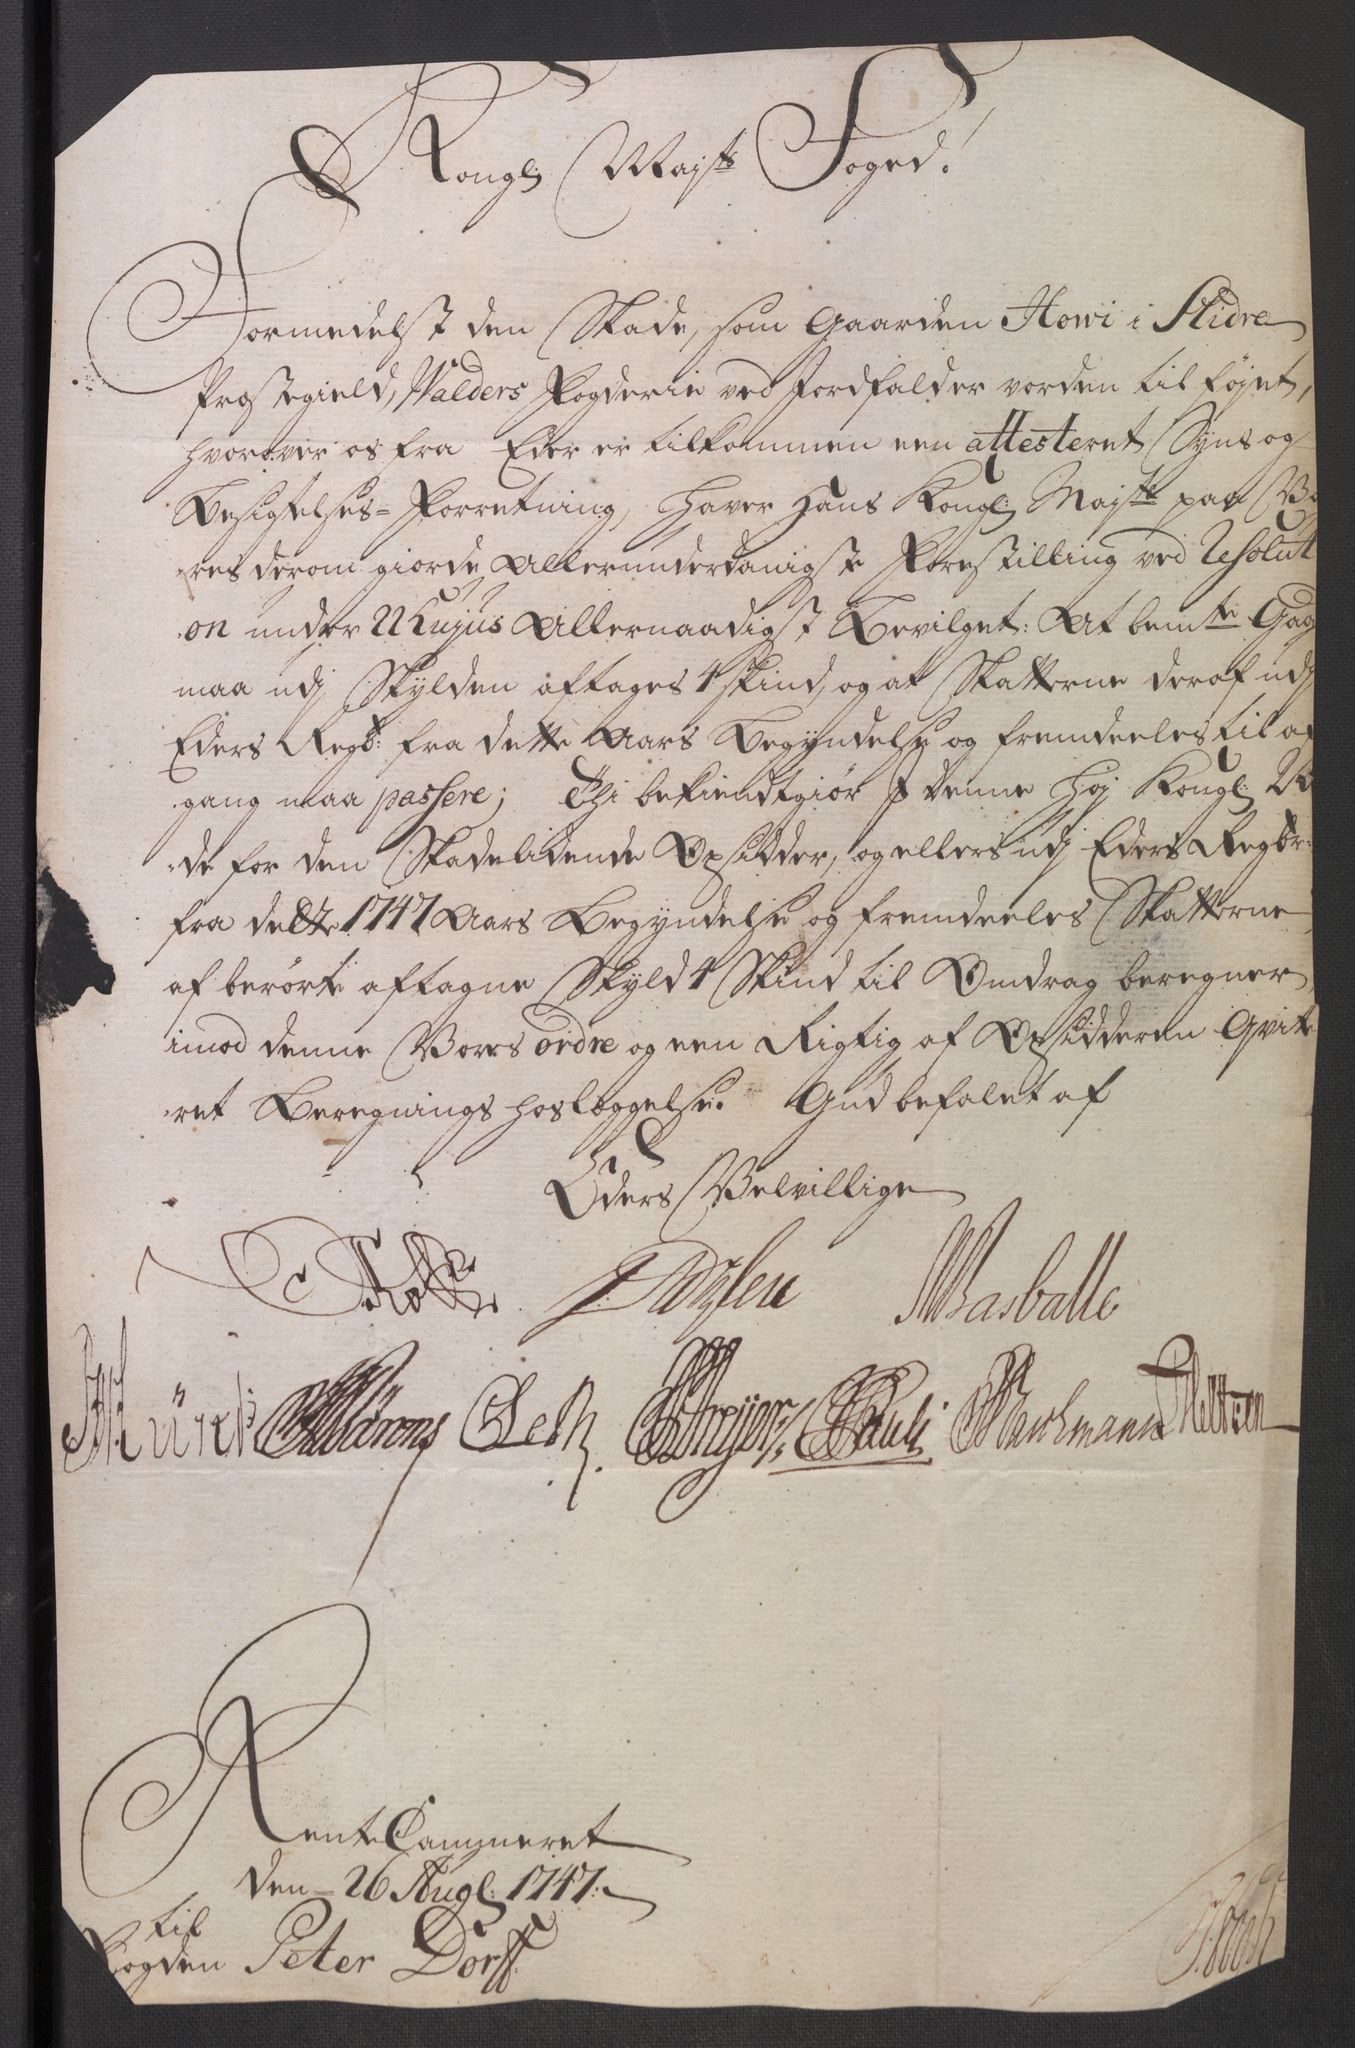 Kongl: Mayts Foged!
Formedelst den Skade, som Gaarden Howi i Slidre
Præstegield, Walders Fogderie ved Jordfalder vorden til føjet,
hvorover os fra Eder er tilkommen een attesteret Syns og
Besigtelses-Forretning, haver Hans Kongl: Mayts paa Vo
res derom giorde Allerunderdanigste Forestilling ved Resoluti
on under 22 hujus Allernaadigst Bevilget: At bemte Gaa
maa udj Skylden aftages 4 skind, og at Skatterne deraf udj
Eders Regb: fra dette Aars Begyndelse og fremdeeles til af
gang maa passere; Thi bekiendtgiør I denne høj Kongl: Naa
de for den Skadelidende Opsidder, og ellers udj Eders Regbr:
fra dette 1747 Aars Begyndelse og fremdeeles Skatterne
af berørte aftagne Skyld 4 Skind til Omdrag beregner
imod denne Vores ordre og een Rigtig af Opsidderen Qvite
ret Beregnings hoslæggelse. Gud befalet af
Eders Velvillige
Rasballe
Leth. Pauli
RenteCammeret
den 26 Augl: 1747.
til
Fogden Peter Dorff.